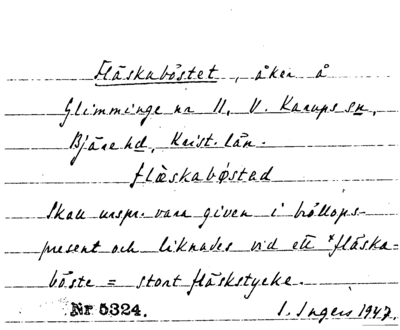 Fläskaböstet, åker å
Glimminge nr 11, V. Karups sn,
Bjäre hd, Krist. län.
flæskabøstad
Skall urspr. vara given i bröllops-
present och liknades vid ett *fläska-
böste = stort fläskstycke.
Nr 5324. I. Ingers 1947.